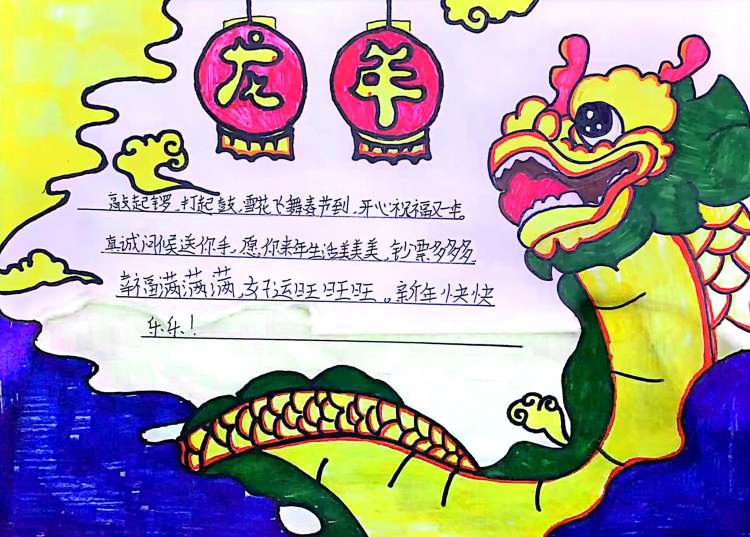 龙年
敲起锣,打起鼓,雪花飞舞春节到,开心祝福又一年。
真诚问候送你手,愿你来年生活美美美,钞票多多多,
幸福满满满,好运旺旺旺。新年快快
乐乐!